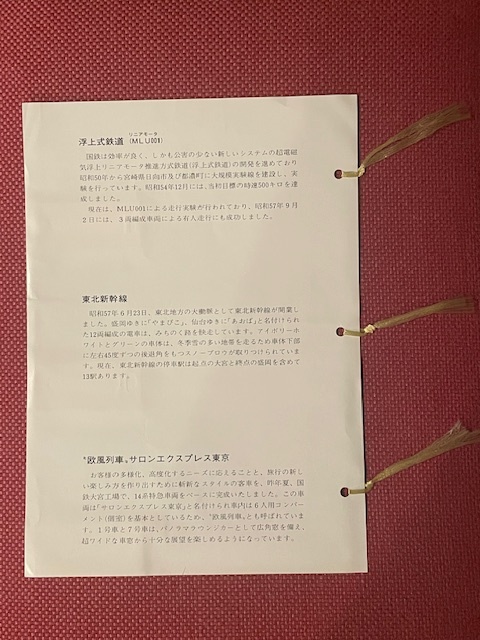 浮上式鉄道 リニアモータ (MLU001)
国鉄は効率が良く、しかも公害の少ない新しいシステムの超電磁
気浮上リニアモータ推進方式鉄道(浮上式鉄道)の開発を進めており
昭和50年から宮崎県日向市及び都農町に大規模実験線を建設し、実
験を行っています。昭和54年12月には、当初目標の時速500キロを達
成しました。
現在は、MLU001による走行実験が行われており、昭和57年9月
2日には、3両編成車両による有人走行にも成功しました。
東北新幹線
昭和57年6月23日、東北地方の大動脈として東北新幹線が開業し
ました。盛岡ゆきに「やまびこ」、仙台ゆきに「あおば」と名付けられ
た12両編成の電車は、みちのく路を快走しています。アイボリーホ
ワイトとグリーンの車体は、冬季雪の多い地帯を走るため車体下部
に左右45度ずつの後退角をもつスノープロウが取りつけられていま
す。現在、東北新幹線の停車駅は起点の大宮と終点の盛岡を含めて
13駅あります。
"欧風列車"サロンエクスプレス東京
お客様の多様化、高度化するニーズに応えることと、旅行の新し
い楽しみ方を作り出すために斬新なスタイルの客車を、昨年夏、国
鉄大宮工場で、14系特急車両をベースに完成いたしました。この車
両は「サロンエクスプレス東京」と名付けられ車内は6人用コンパー
メント(個室)を基本としているため、"欧風列車"とも呼ばれていま
す。1号車と7号車は、パノラマラウンジカーとして広角窓を備え、
超ワイドな車窓から十分な展望を楽しめるようになっています。